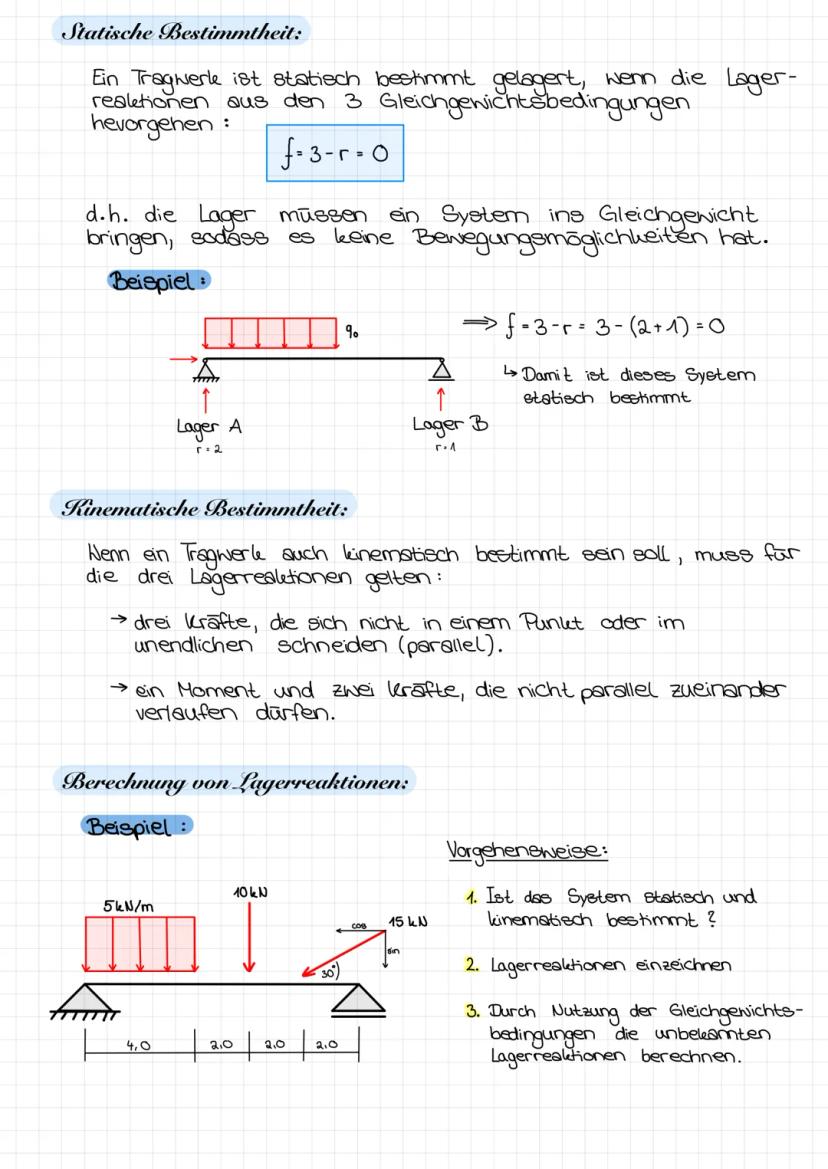 Statische Bestimmtheit:
Ein Tragwerk ist statisch bestimmt gelagert, wenn die Lager-
reaktionen aus den 3 Gleichgewichtsbedingungen
hevorgehen :
f = 3 - r = 0
d.h. die Lager müssen ein System ins Gleichgewicht
bringen, sodass es keine Bewegungsmöglichkeiten hat.
Beispiel :
q₀
⇒ f = 3 - r = 3 - (2 + 1) = 0
↳ Damit ist dieses System
statisch bestimmt
Lager A
r = 2
Lager B
r = 1
Kinematische Bestimmtheit:
Wenn ein Tragwerk auch kinematisch bestimmt sein soll, muss für
die drei Lagerreaktionen gelten :
→ drei Kräfte, die sich nicht in einem Punkt oder im
unendlichen schneiden (parallel).
→ ein Moment und zwei Kräfte, die nicht parallel zueinander
verlaufen dürfen.
Berechnung von Lagerreaktionen:
Beispiel :
5 kN/m
10 kN
15 kN
cos
sin
30°
4,0
2,0
2,0
2,0
Vorgehensweise:
1. Ist das System statisch und
kinematisch bestimmt ?
2. Lagerreaktionen einzeichnen
3. Durch Nutzung der Gleichgewichts-
bedingungen die unbekannten
Lagerreaktionen berechnen.